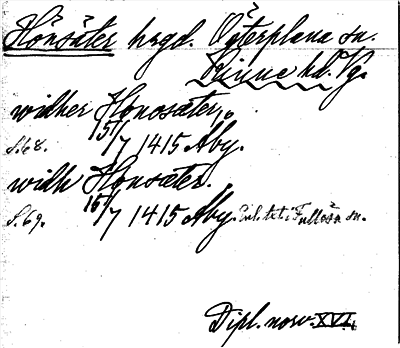 Hönsäter hrgd. Österplana sn.
Kinne hd. Vg.
widher Honosæter,
S.68. 15/7 1415 Aby.
widh Honsæter.
S.69. 15/7 1415 Aby. Enl. txt i Fullösa sn.
Dipl. norv. XVI.